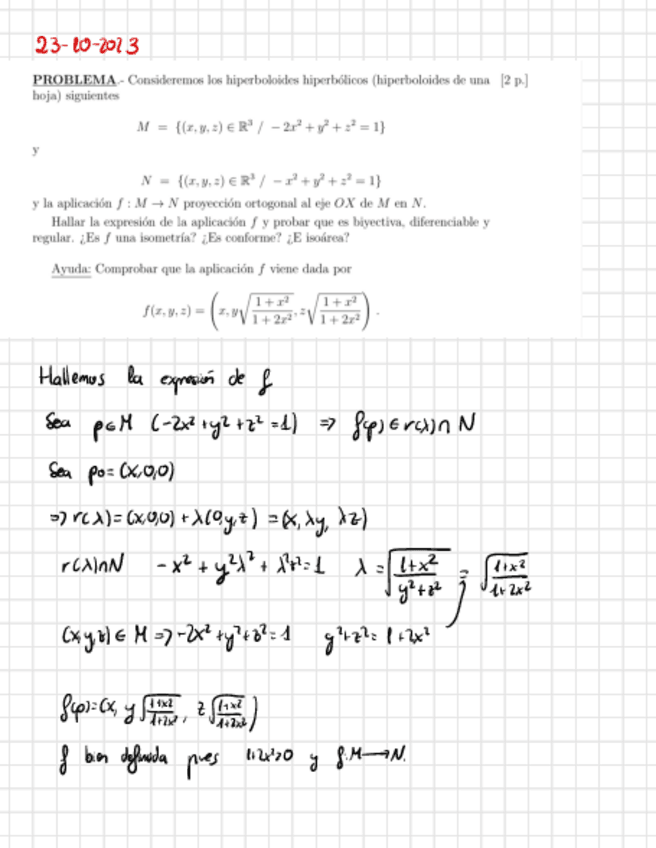 23-10-2023
PROBLEMA.- Consideremos los hiperboloides hiperbólicos (hiperboloides de una [2 p.]
hoja) siguientes
M = {(x, y, z) ∈ ℝ³ / − 2x² + y² + z² = 1}
y
N = {(x, y, z) ∈ ℝ³ / − x² + y² + z² = 1}
y la aplicación f : M → N proyección ortogonal al eje OX de M en N.
Hallar la expresión de la aplicación f y probar que es biyectiva, diferenciable y
regular. ¿Es f una isometría? ¿Es conforme? ¿E isoárea?
Ayuda: Comprobar que la aplicación f viene dada por
f(x, y, z) = (x, y√((1 + x²)/(1 + 2x²)), z√((1 + x²)/(1 + 2x²))).
Hallemos la expresión de f
Sea p∈M (-2x²+y²+z²=1) ⇒ f(p)∈r(λ)∩N
Sea p0=(x,0,0)
⇒ r(λ)=(x,0,0)+λ(0,y,z) =(x, λy, λz)
r(λ)∩N -x² + y²λ² + λ²z²=1 λ=√((1+x²)/(y²+z²)) = √((1+x²)/(1+2x²))
(x,y,z)∈M ⇒ -2x²+y²+z²=1 y²+z²=1+2x²
f(p)=(x, y√((1+x²)/(1+2x²)), z√((1+x²)/(1+2x²)))
f bien definida pues 1+2x²>0 y f:M→N.